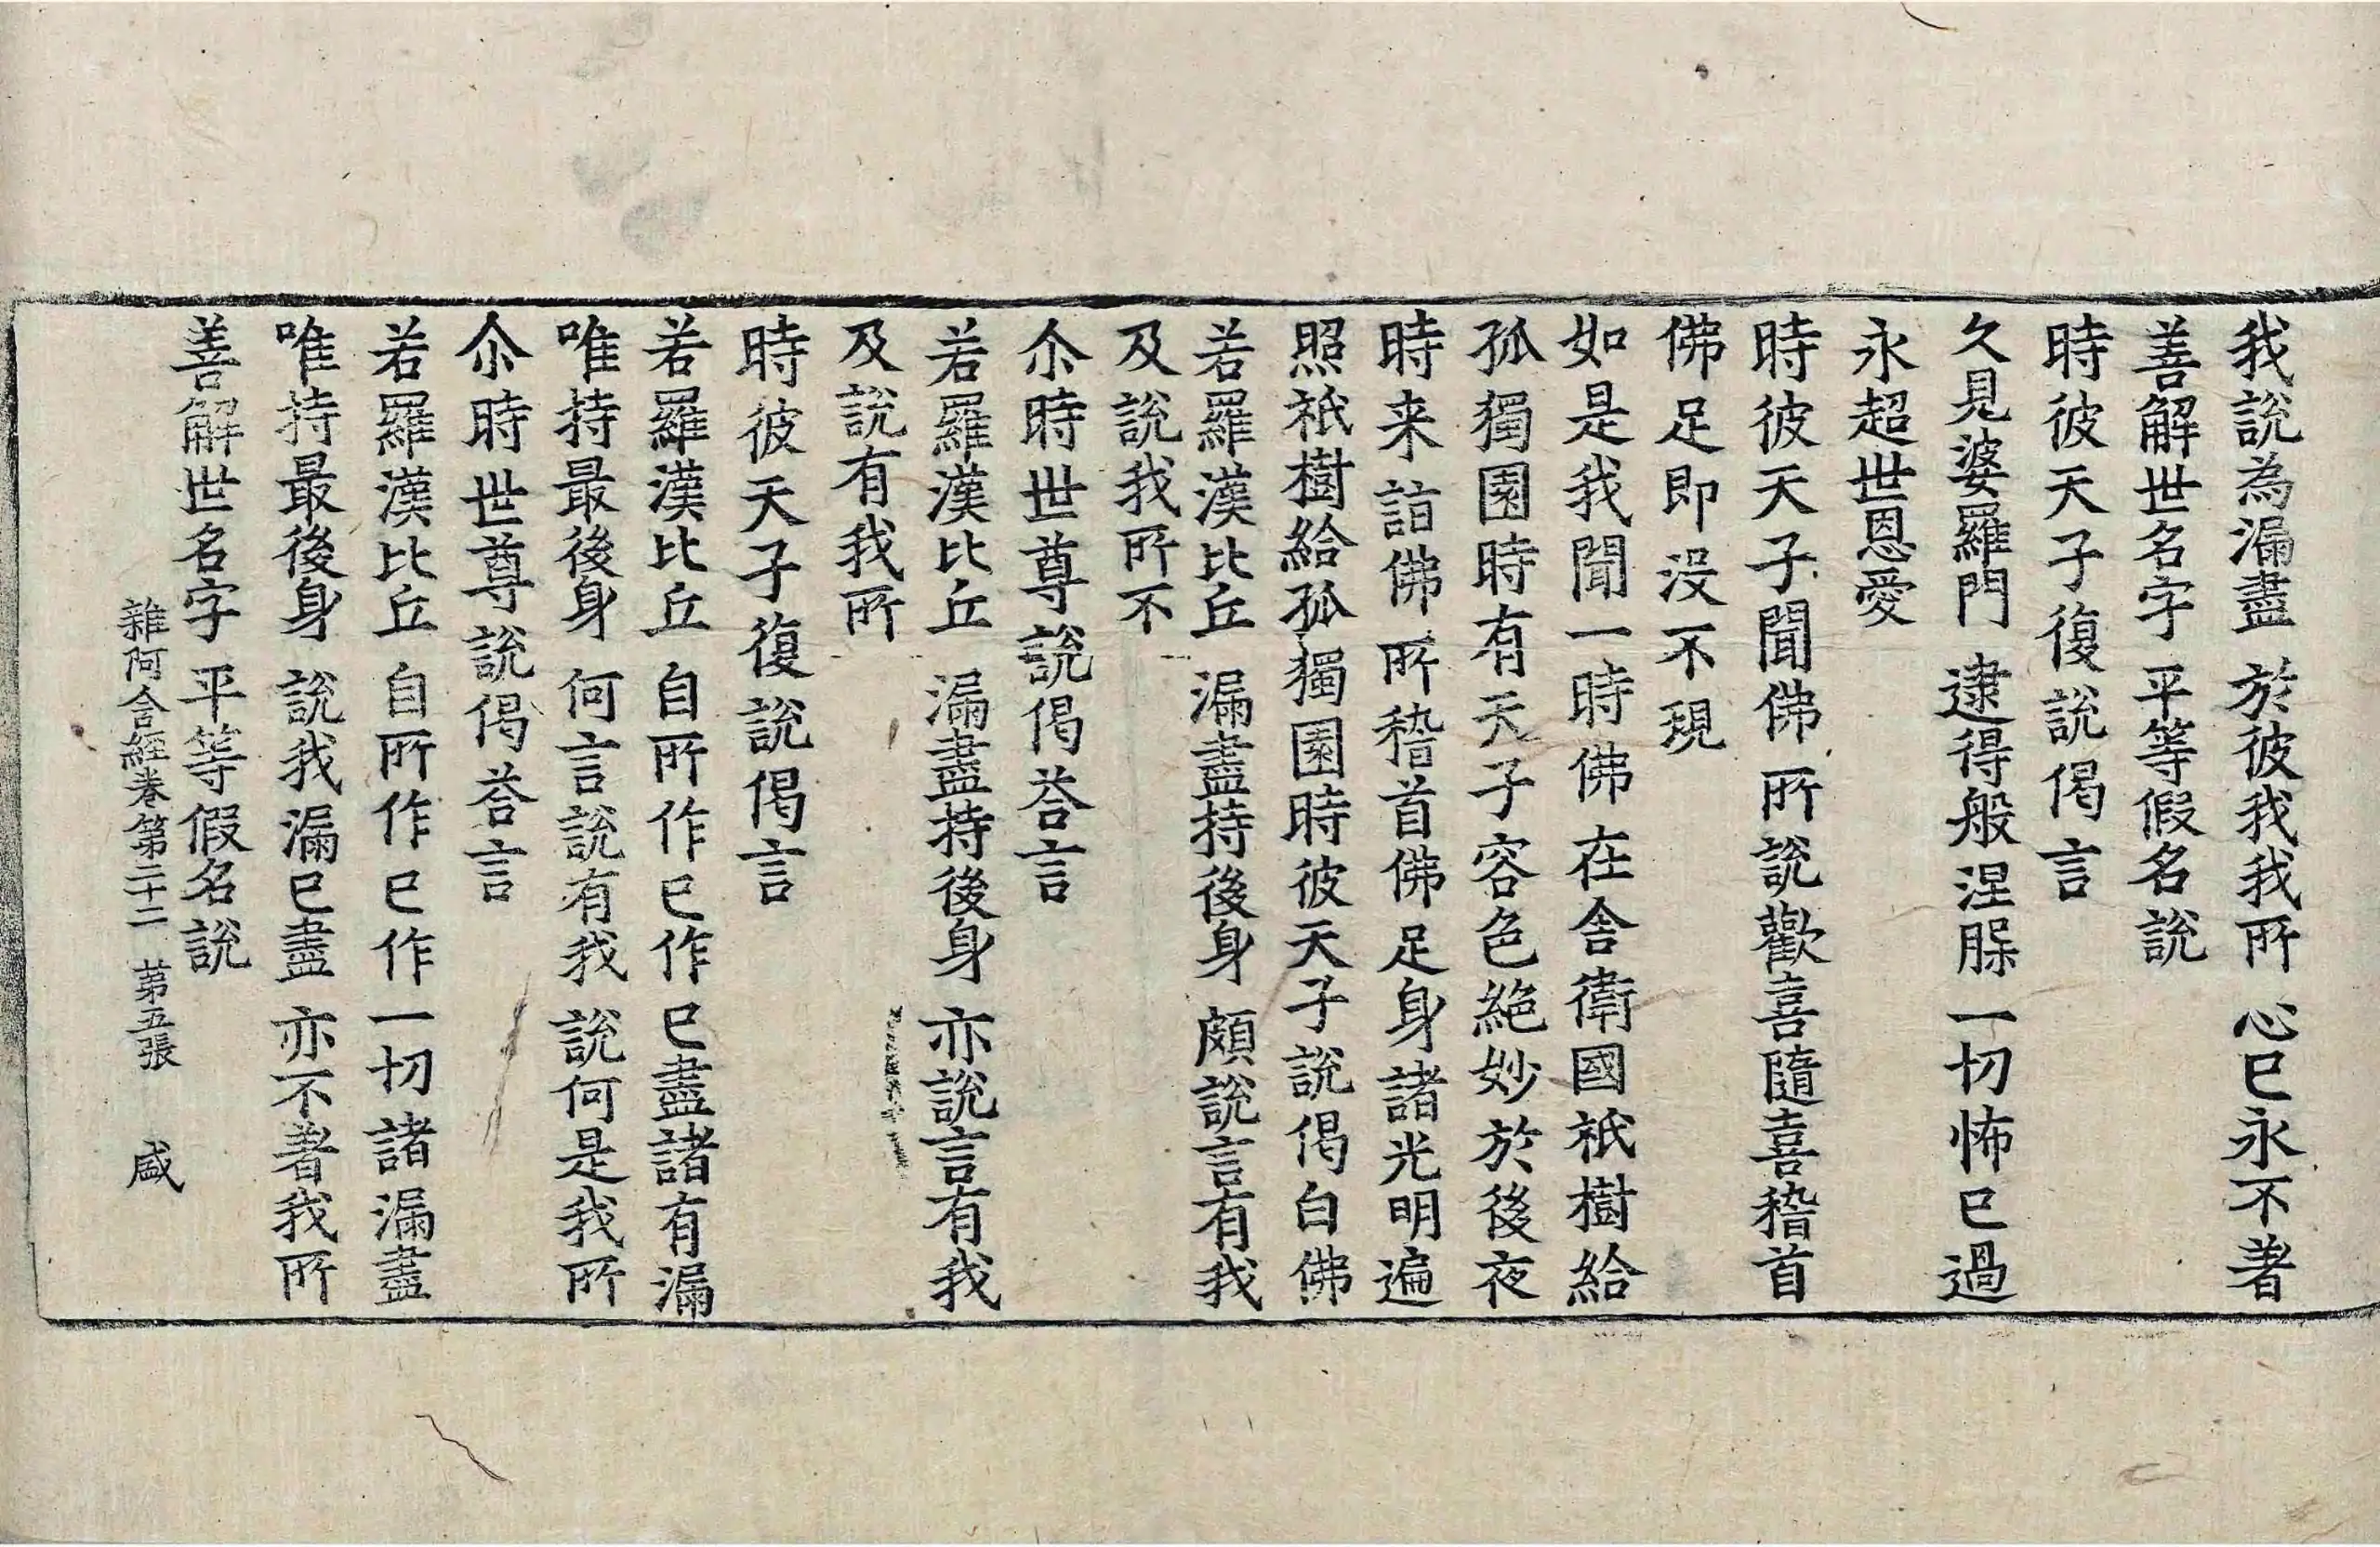 我說為漏盡　於彼我我所　心已永不著
善解世名字　平等假名說
時彼天子復說偈言
久見婆羅門　逮得般涅槃　一切怖已過
永超世恩愛
時彼天子聞佛所說歡喜隨喜稽首
佛足即没不現
如是我聞一時佛在舍衛國祇樹給
孤獨園時有天子容色絕妙於後夜
時来詣佛所稽首佛足身諸光明遍
照祇樹給孤獨園時彼天子說偈白佛
若羅漢比丘　漏盡持後身　頗說言有我
及說我所不
尒時世尊說偈荅言
若羅漢比丘　漏盡持後身　亦說言有我
及說有我所
時彼天子復說偈言
若羅漢比丘　自所作已作　已盡諸有漏
唯持最後身　何言說有我　說何是我所
尒時世尊說偈荅言
若羅漢比丘　自所作已作　一切諸漏盡
唯持最後身　說我漏已盡　亦不著我所
善解世名字　平等假名說
雜阿含經卷第二十二　苐五張　盛